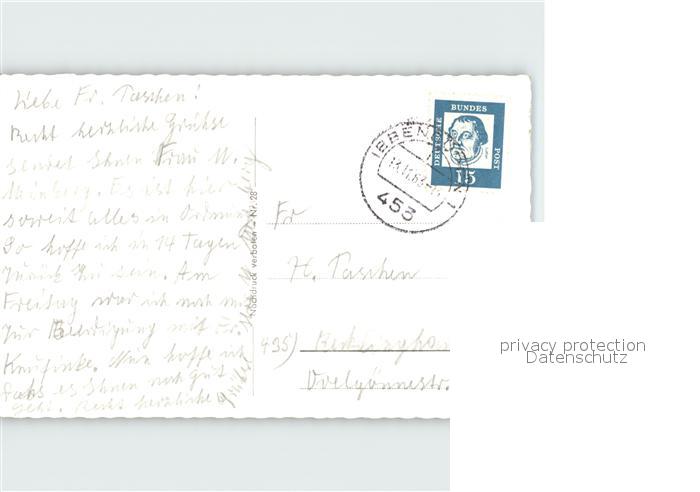 Liebe Fr. Taschen!
Recht herzliche Grüße
sendet Ihnen Frau M.
Es ist hier
soweit alles in Ordnung
So hoffe ich in 14 Tagen
zurück zu sein. Am
Freitag war ich noch
zur Beerdigung mit Fr.
Nun hoffe ich
es Ihnen noch gut
geht. Recht herzliche
Nachdruck verboten - Nr. 28
DEUTSCHE
BUNDES
POST
15
453
Fr
H. Taschen
435)
Ovelgönnestr.
privacy protection
Datenschutz